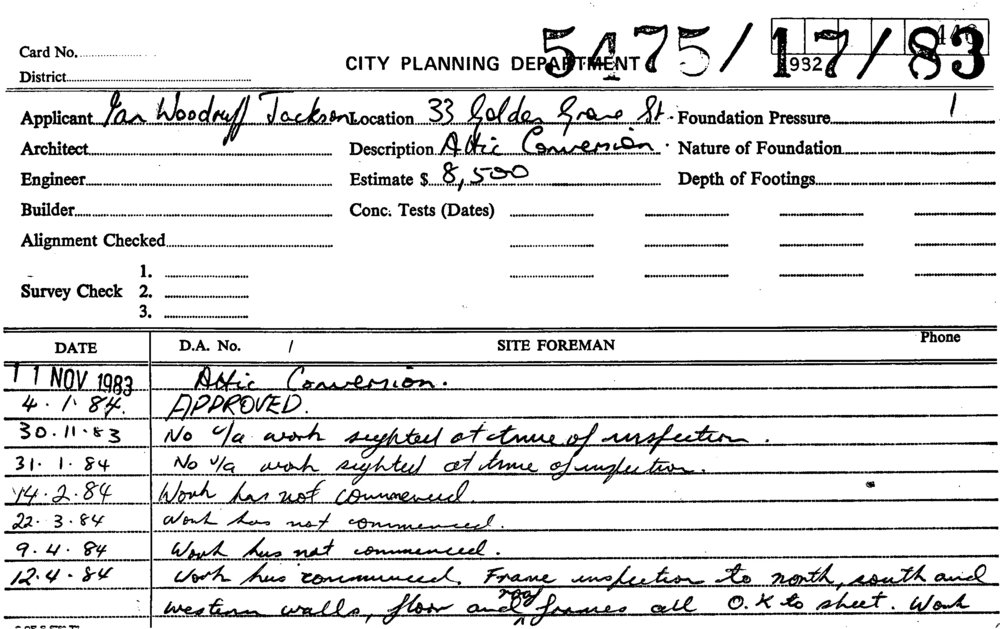 Card No.
5475/17/83
446
CITY PLANNING DEPARTMENT
932
District
Applicant Ian Woodruff Jackson Location 33 Golden Grove St. Foundation Pressure
Architect Description Attic Conversion. Nature of Foundation
Engineer Estimate $ 8,500 Depth of Footings
Builder Conc. Tests (Dates)
Alignment Checked
1.
Survey Check 2.
3.
DATE D.A. No. / SITE FOREMAN Phone
11 NOV 1983 Attic Conversion.
4.1.84. APPROVED.
30.11.83 No u/a work sighted at time of inspection.
31.1.84 No u/a work sighted at time of inspection.
14.2.84 Work has not commenced.
22.3.84 Work has not commenced.
9.4.84 Work has not commenced.
12.4.84 Work has commenced. Frame inspection to north, south and
western walls, floor and roof frames all O.K to sheet. Work